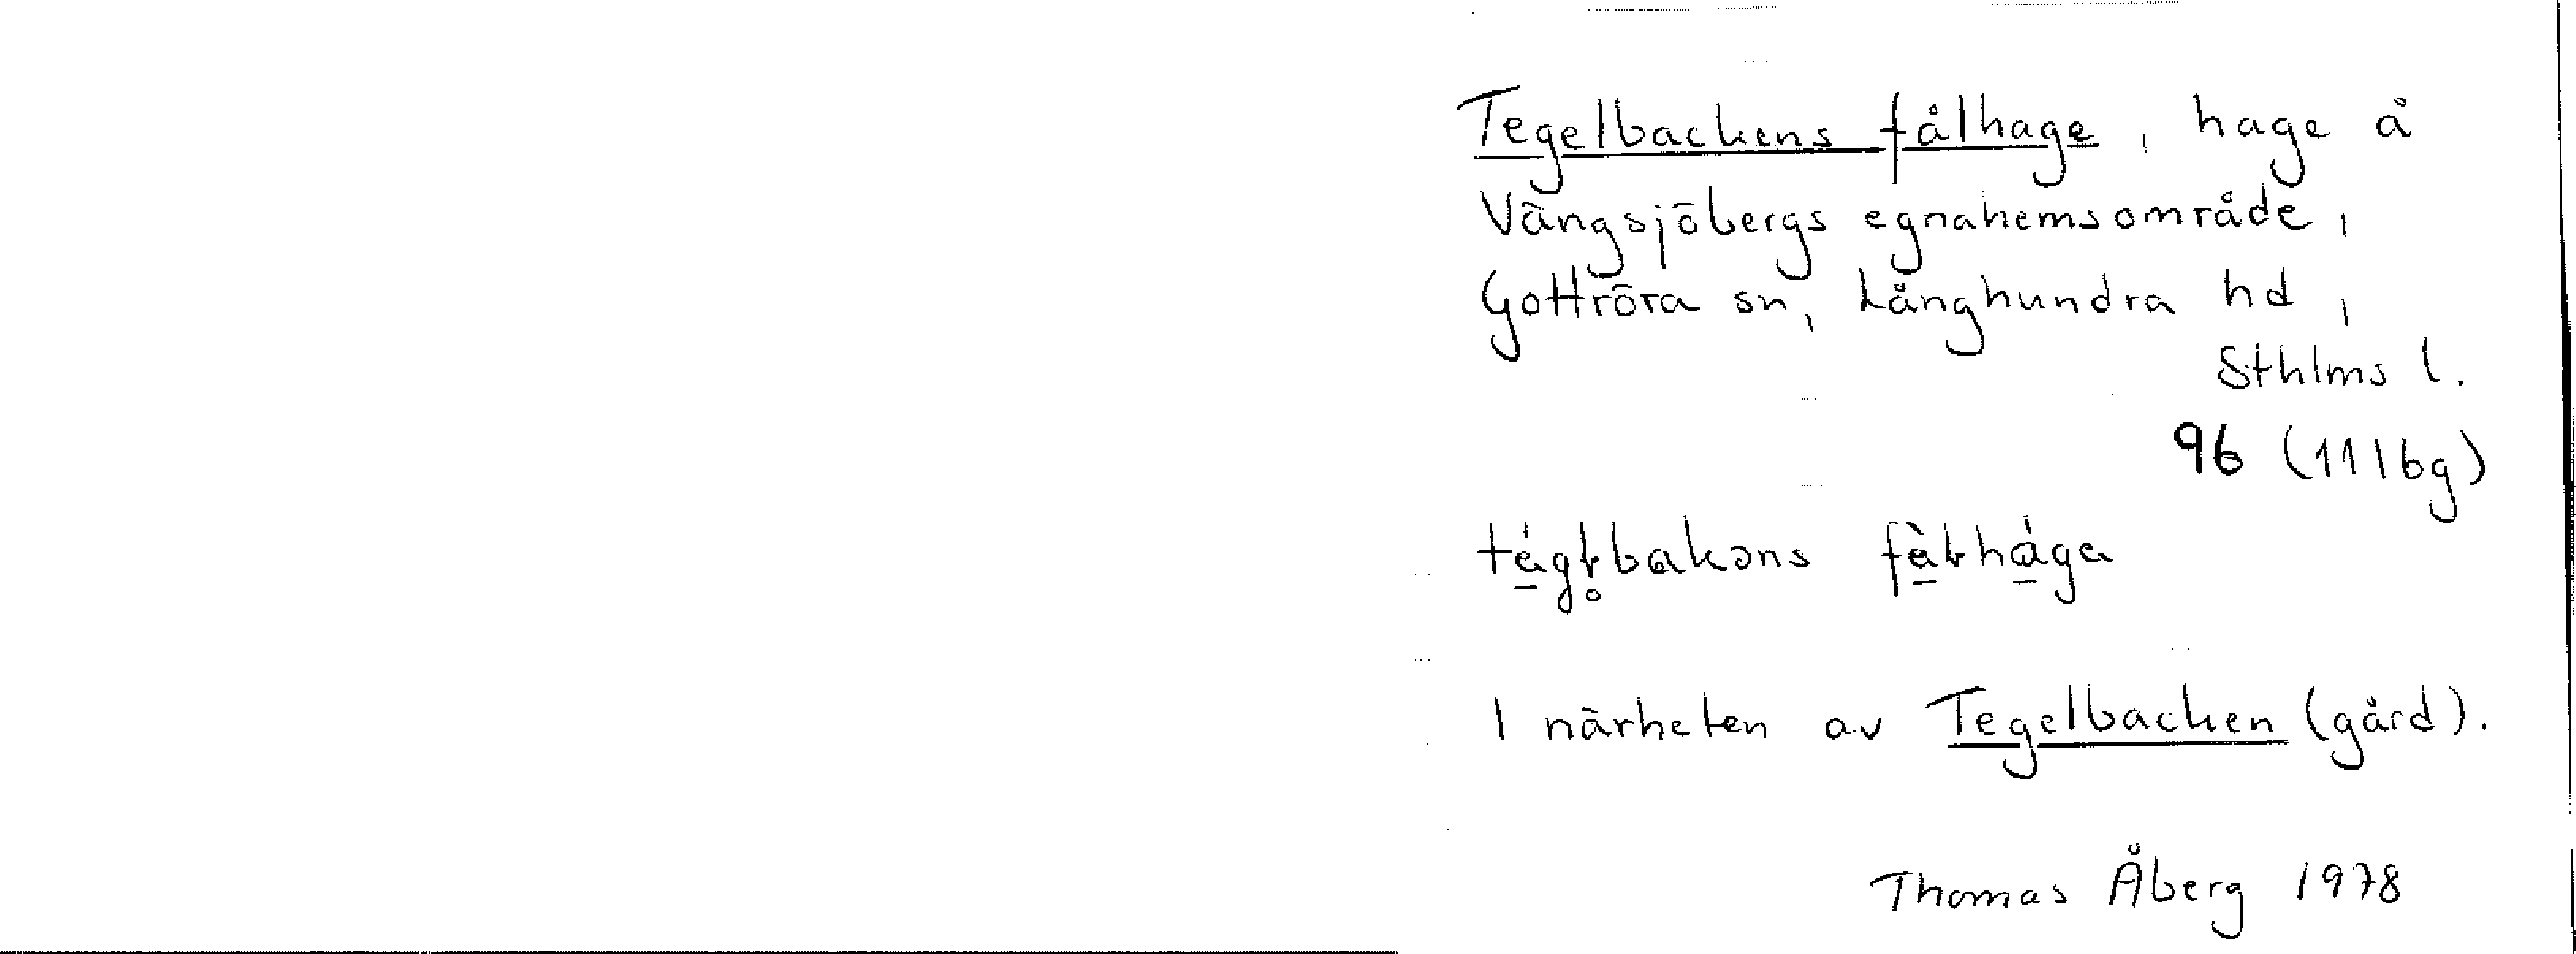 Tegelbackens fålhage, hage å
Vängsjöbergs egnahemsområde,
Gottröra sn, Långhundra hd,
Sthlms l.
96 (11Ibg)
I närheten av Tegelbacken (gård).
Thomas Åberg 1978